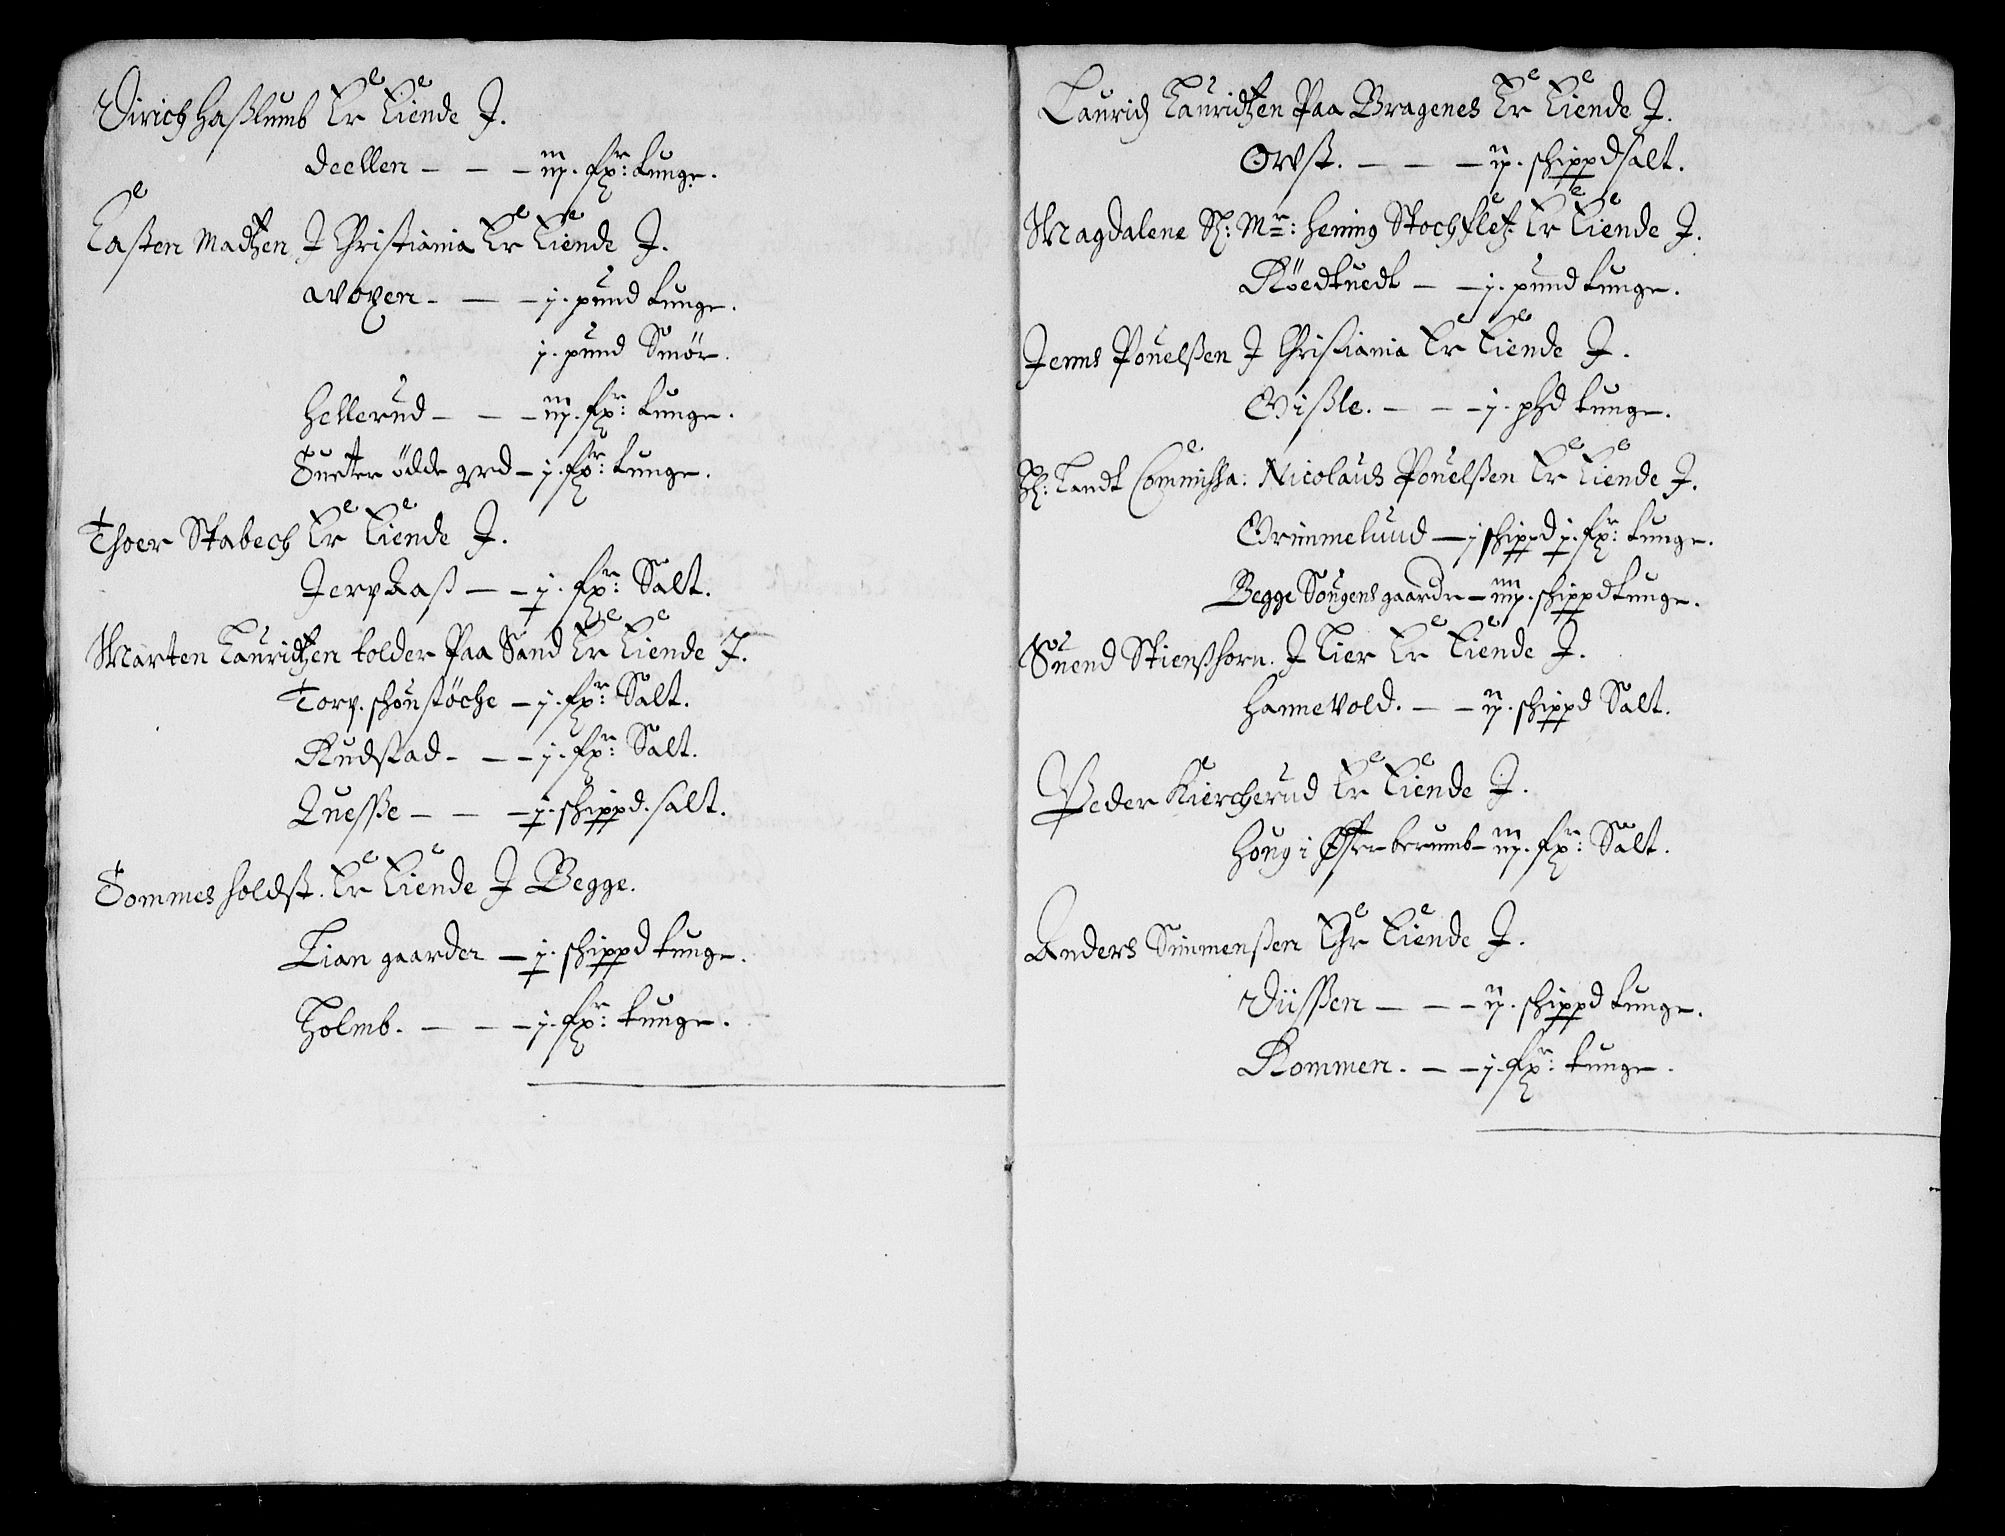 Dirich Haßlumb Er Eiende J.
Deellen - - - iij. fxr: tunge.
Casten Madtzen J Christiania Er Eiende J.
Avoxen - - - j. pund tunge.
j. pund Smør.
Hellerud - - - iij. fxr: tunge.
Suetter ödde grd - j. fxr: tunge.
Thoer Stabech Er Eiende J.
Jerpkaß - - j. fxr: Salt.
Marten Lauridtzen tolder Paa Sand Er Eiende J.
Torp. schoustöche - j. fxr: Salt.
Rudstad - - - j. fxr: Salt.
Quesse - - - j. schippd. salt.
Tommes Holdst. Er Eiende J Begge.
Lian gaarder - j. schippd tunge.
Holmb. - - - j. fxr: tunge.
Laurids Lauridtzen Paa Bragenes Er Eiende J.
Orvst. - - - ij. schippd salt.
Magdalene Sl: Mr: Hening Stochfletz Er Eiende J.
Röedtuedt - - j. pund tunge.
Jenns Pouelßen J Christiania Er Eiende J.
Gißle. - - - j. phd tunge.
Sl: Landt Commissa: Nicolaus Pouelßen Er Eiende J.
Grimmelund - j schippd j. fxr: tunge.
Begge Sougens gaarde - iiij. schippd tunge.
Suend Stienßhorn. J Lier Er Eiende J.
Hannevold. - - ij. schippd Salt.
Peder Kiercherud Er Eiende J.
Houg i Øster berumb - iij. fxr: Salt.
Anders Simmenßen Er Eiende J.
Düssen - - - ij. schippd tunge.
Rommen. - - j. fxr: tunge.